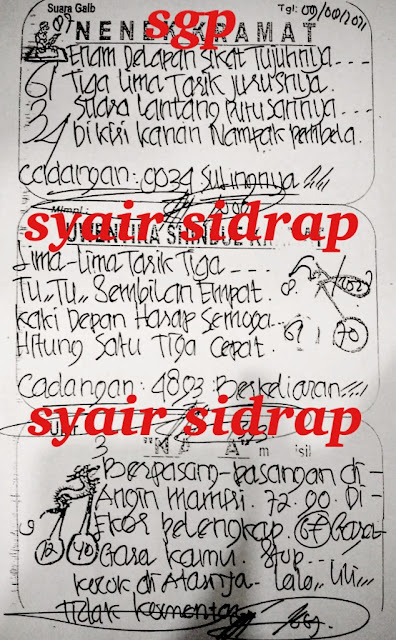 Suara Gaib
Tgl: 09/00/2021
sgp
NENEK KRAMAT
07
Enam Delapan Sikat Tujuhnya - - -
61 Tiga Lima Tarik Jurusnya.
Suara Lantang Putusannya - - -
34 Di Kiri Kanan Nampak Pembela.
Cadangan : 9034 Sulingnya
syair sidrap
Mimpi :
Lima-Lima Tarik Tiga - - -
Tu,, Tu,, Sembilan Empat.
Kaki Depan Harap Semoga - -
Hitung Satu Tiga Cepat.
8
61 70
Cadangan : 4803 : Berkeliaran
syair sidrap
3
Berpasang-pasangan di -
Angin mampri. 72. 00. Di -
Ekor pelengkap. 67 Gara-
Gara kamu. Stop - - -
9
12 40
di Atasnya Lala,, Lili,,
Tidak Komentar